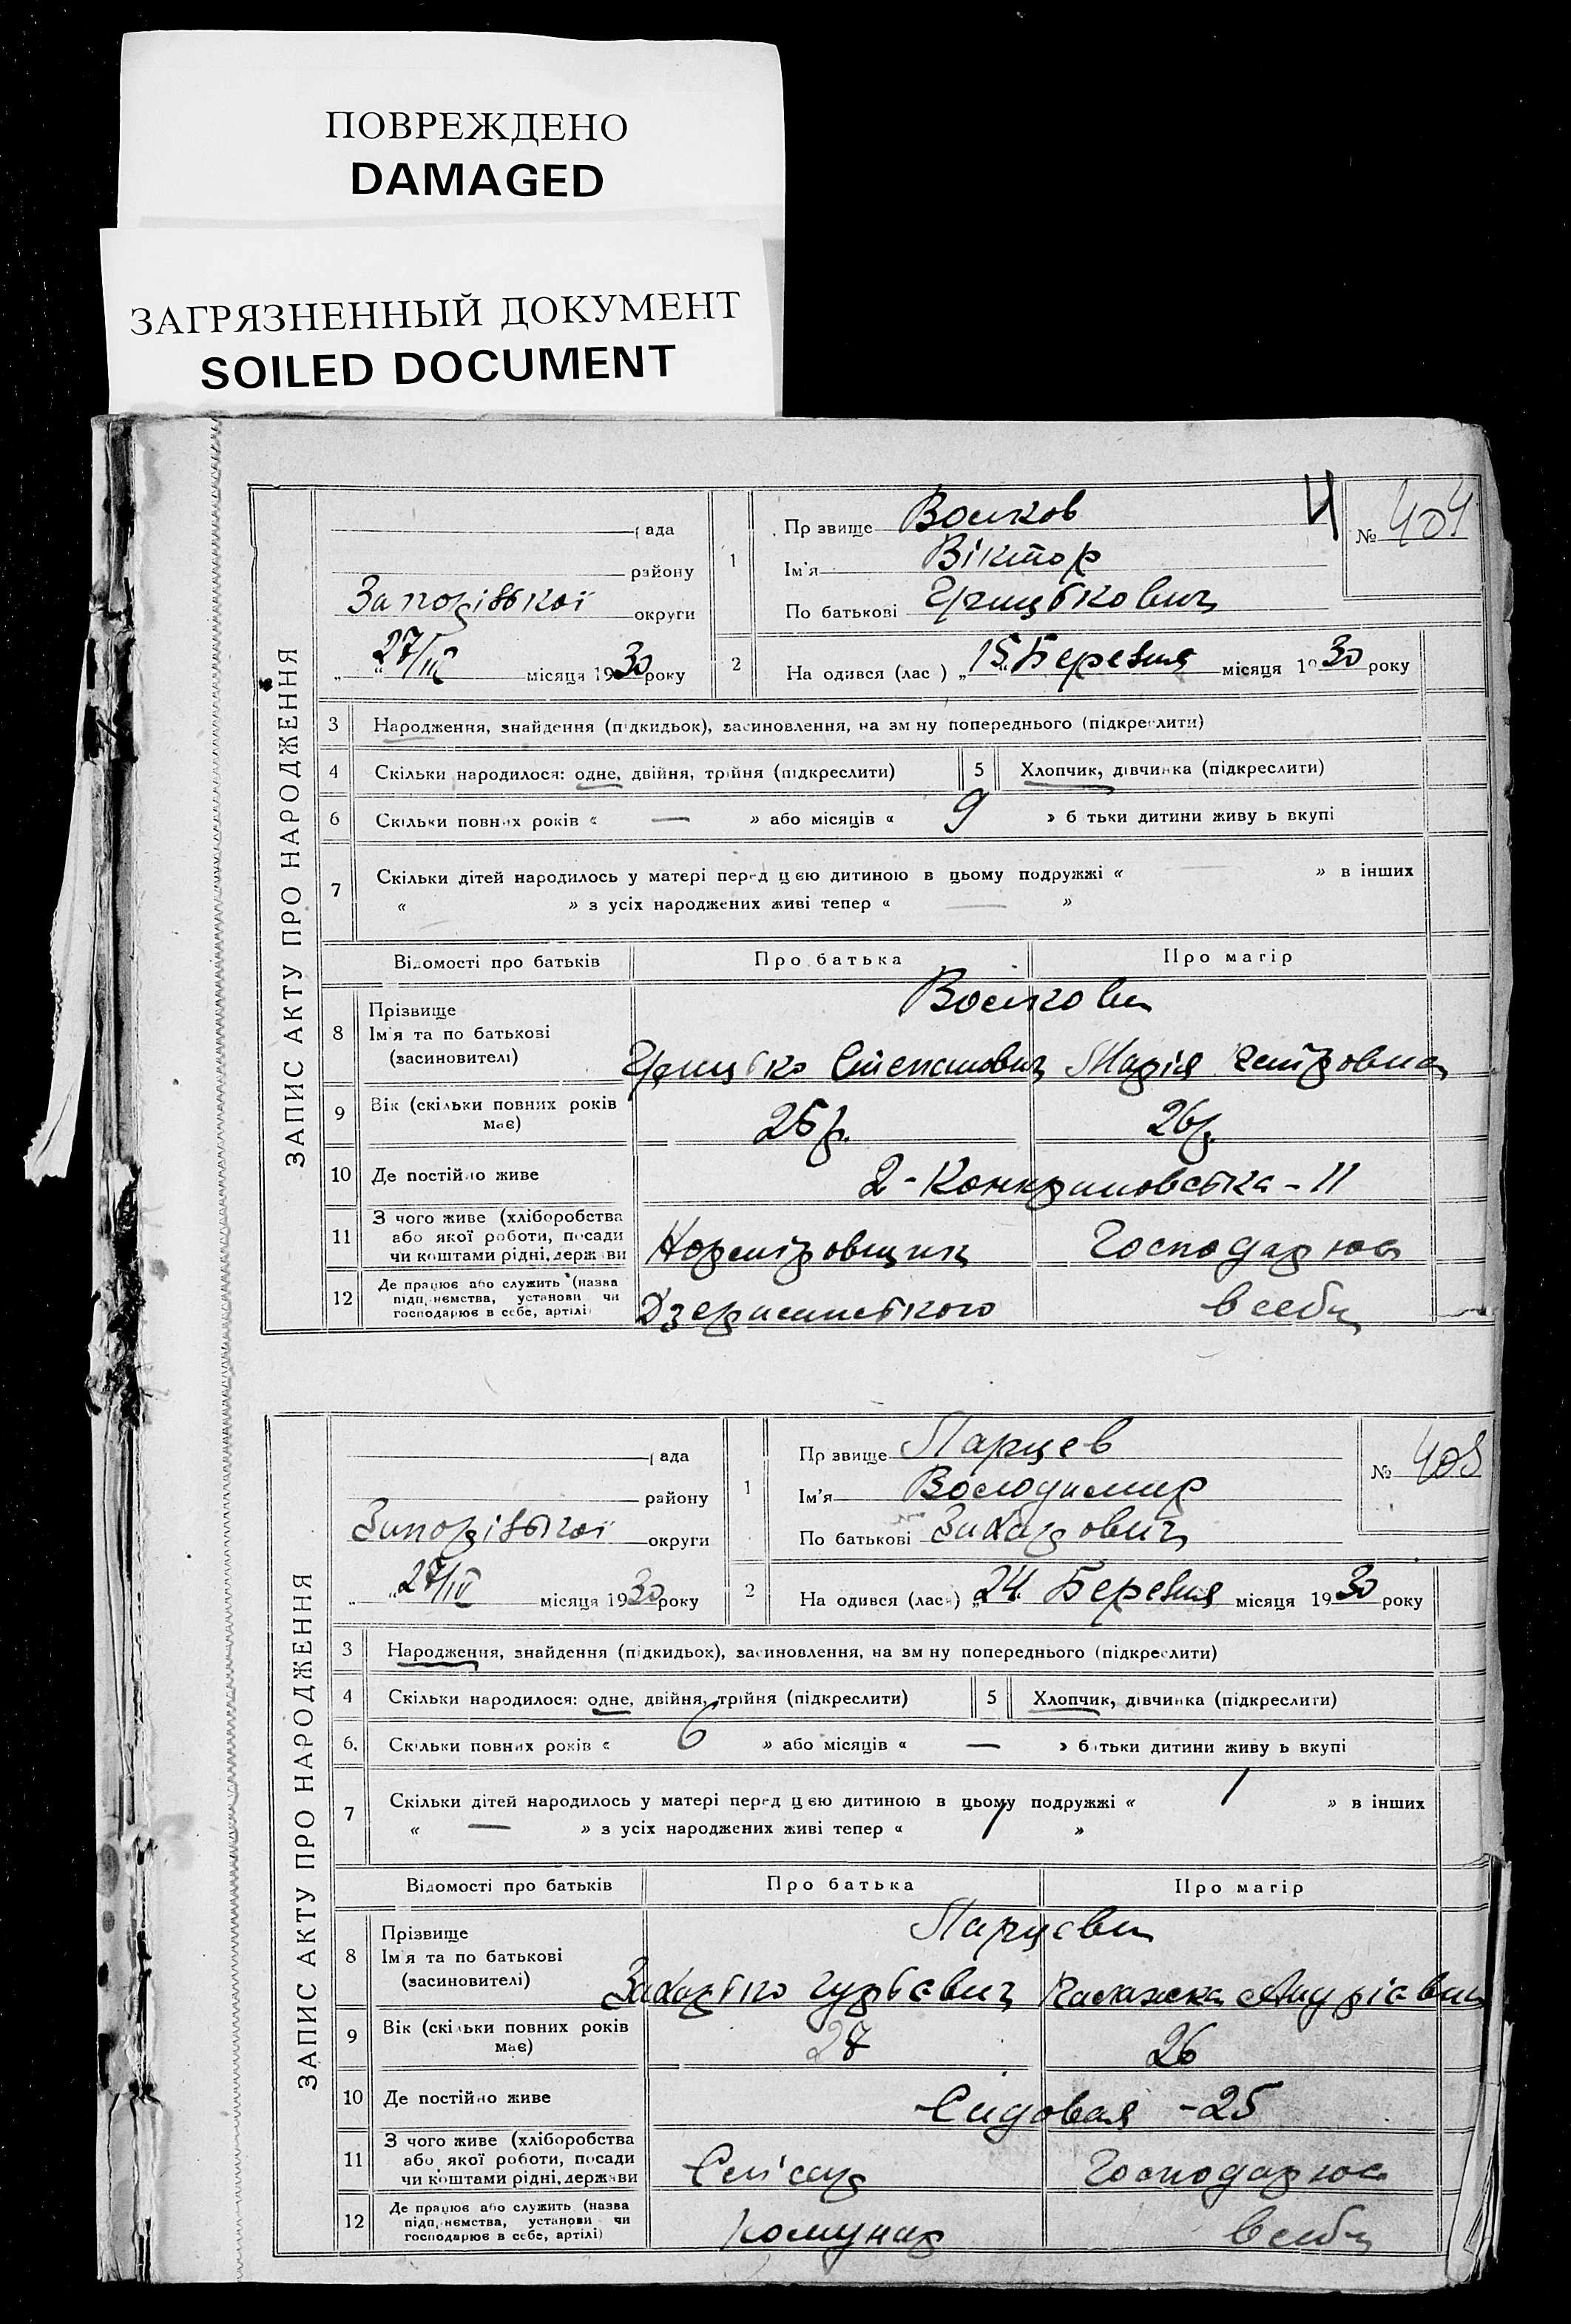 ПОВРЕЖДЕНО
DAMAGED
ЗАГРЯЗНЕННЫЙ ДОКУМЕНТ
SOILED DOCUMENT
ЗАПИС АКТУ ПРО НАРОДЖЕННЯ
ада
району
Запорізької округи
27/III місяця 1930 року
1
Пр звище
Ім'я Віктор
По батькові Грицькович
№ 404
2
На одився (лас ) „15" Березня місяця 1930 року
3 Народження, знайдення (підкидьок), засиновлення, на зм ну попереднього (підкреслити)
4 Скільки народилося: одне, двійня, трійня (підкреслити) 5 Хлопчик, дівчинка (підкреслити)
6 Скільки повних років « — » або місяців « 9 » б тьки дитини живу ь вкупі
7 Скільки дітей народилось у матері перед цією дитиною в цьому подружжі « » в інших
« » з усіх народжених живі тепер « — »
Відомості про батьків Про батька Про матір
8 Прізвище
Ім'я та по батькові
(засиновителі)
Грицько Степанович Марія Петровна
9 Вік (скільки повних років має) 26 р. 26 р.
10 Де постійно живе
11 З чого живе (хліборобства
або якої роботи, посади
чи коштами рідні, держави Господарює
12 Де працює або служить (назва
підприємства, установи чи
господарює в себе, артілі) в себе
ЗАПИС АКТУ ПРО НАРОДЖЕННЯ
ада
району
Запорізької округи
27/III місяця 1930 року
1
Пр звище Парцев
Ім'я Володимир
По батькові Захарович
№ 405
2
На одився (лася) „24" Березня місяця 1930 року
3 Народження, знайдення (підкидьок), засиновлення, на зм ну попереднього (підкреслити)
4 Скільки народилося: одне, двійня, трійня (підкреслити) 5 Хлопчик, дівчинка (підкреслити)
6. Скільки повних років « 6 » або місяців « — » б тьки дитини живу ь вкупі
7 Скільки дітей народилось у матері перед цією дитиною в цьому подружжі « 1 » в інших
« — » з усіх народжених живі тепер « 1 »
Відомості про батьків Про батька Про матір
8 Прізвище Парцеви
Ім'я та по батькові
(засиновителі)
Захарько Гурьевич
9 Вік (скільки повних років має) 27 26
10 Де постійно живе Садовая - 25
11 З чого живе (хліборобства
або якої роботи, посади
чи коштами рідні, держави Слісар Господарює
12 Де працює або служить (назва
підприємства, установи чи
господарює в себе, артілі) Комунар в себе